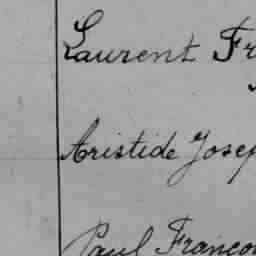 Laurent Fr
Aristide Josep
Paul Françoi